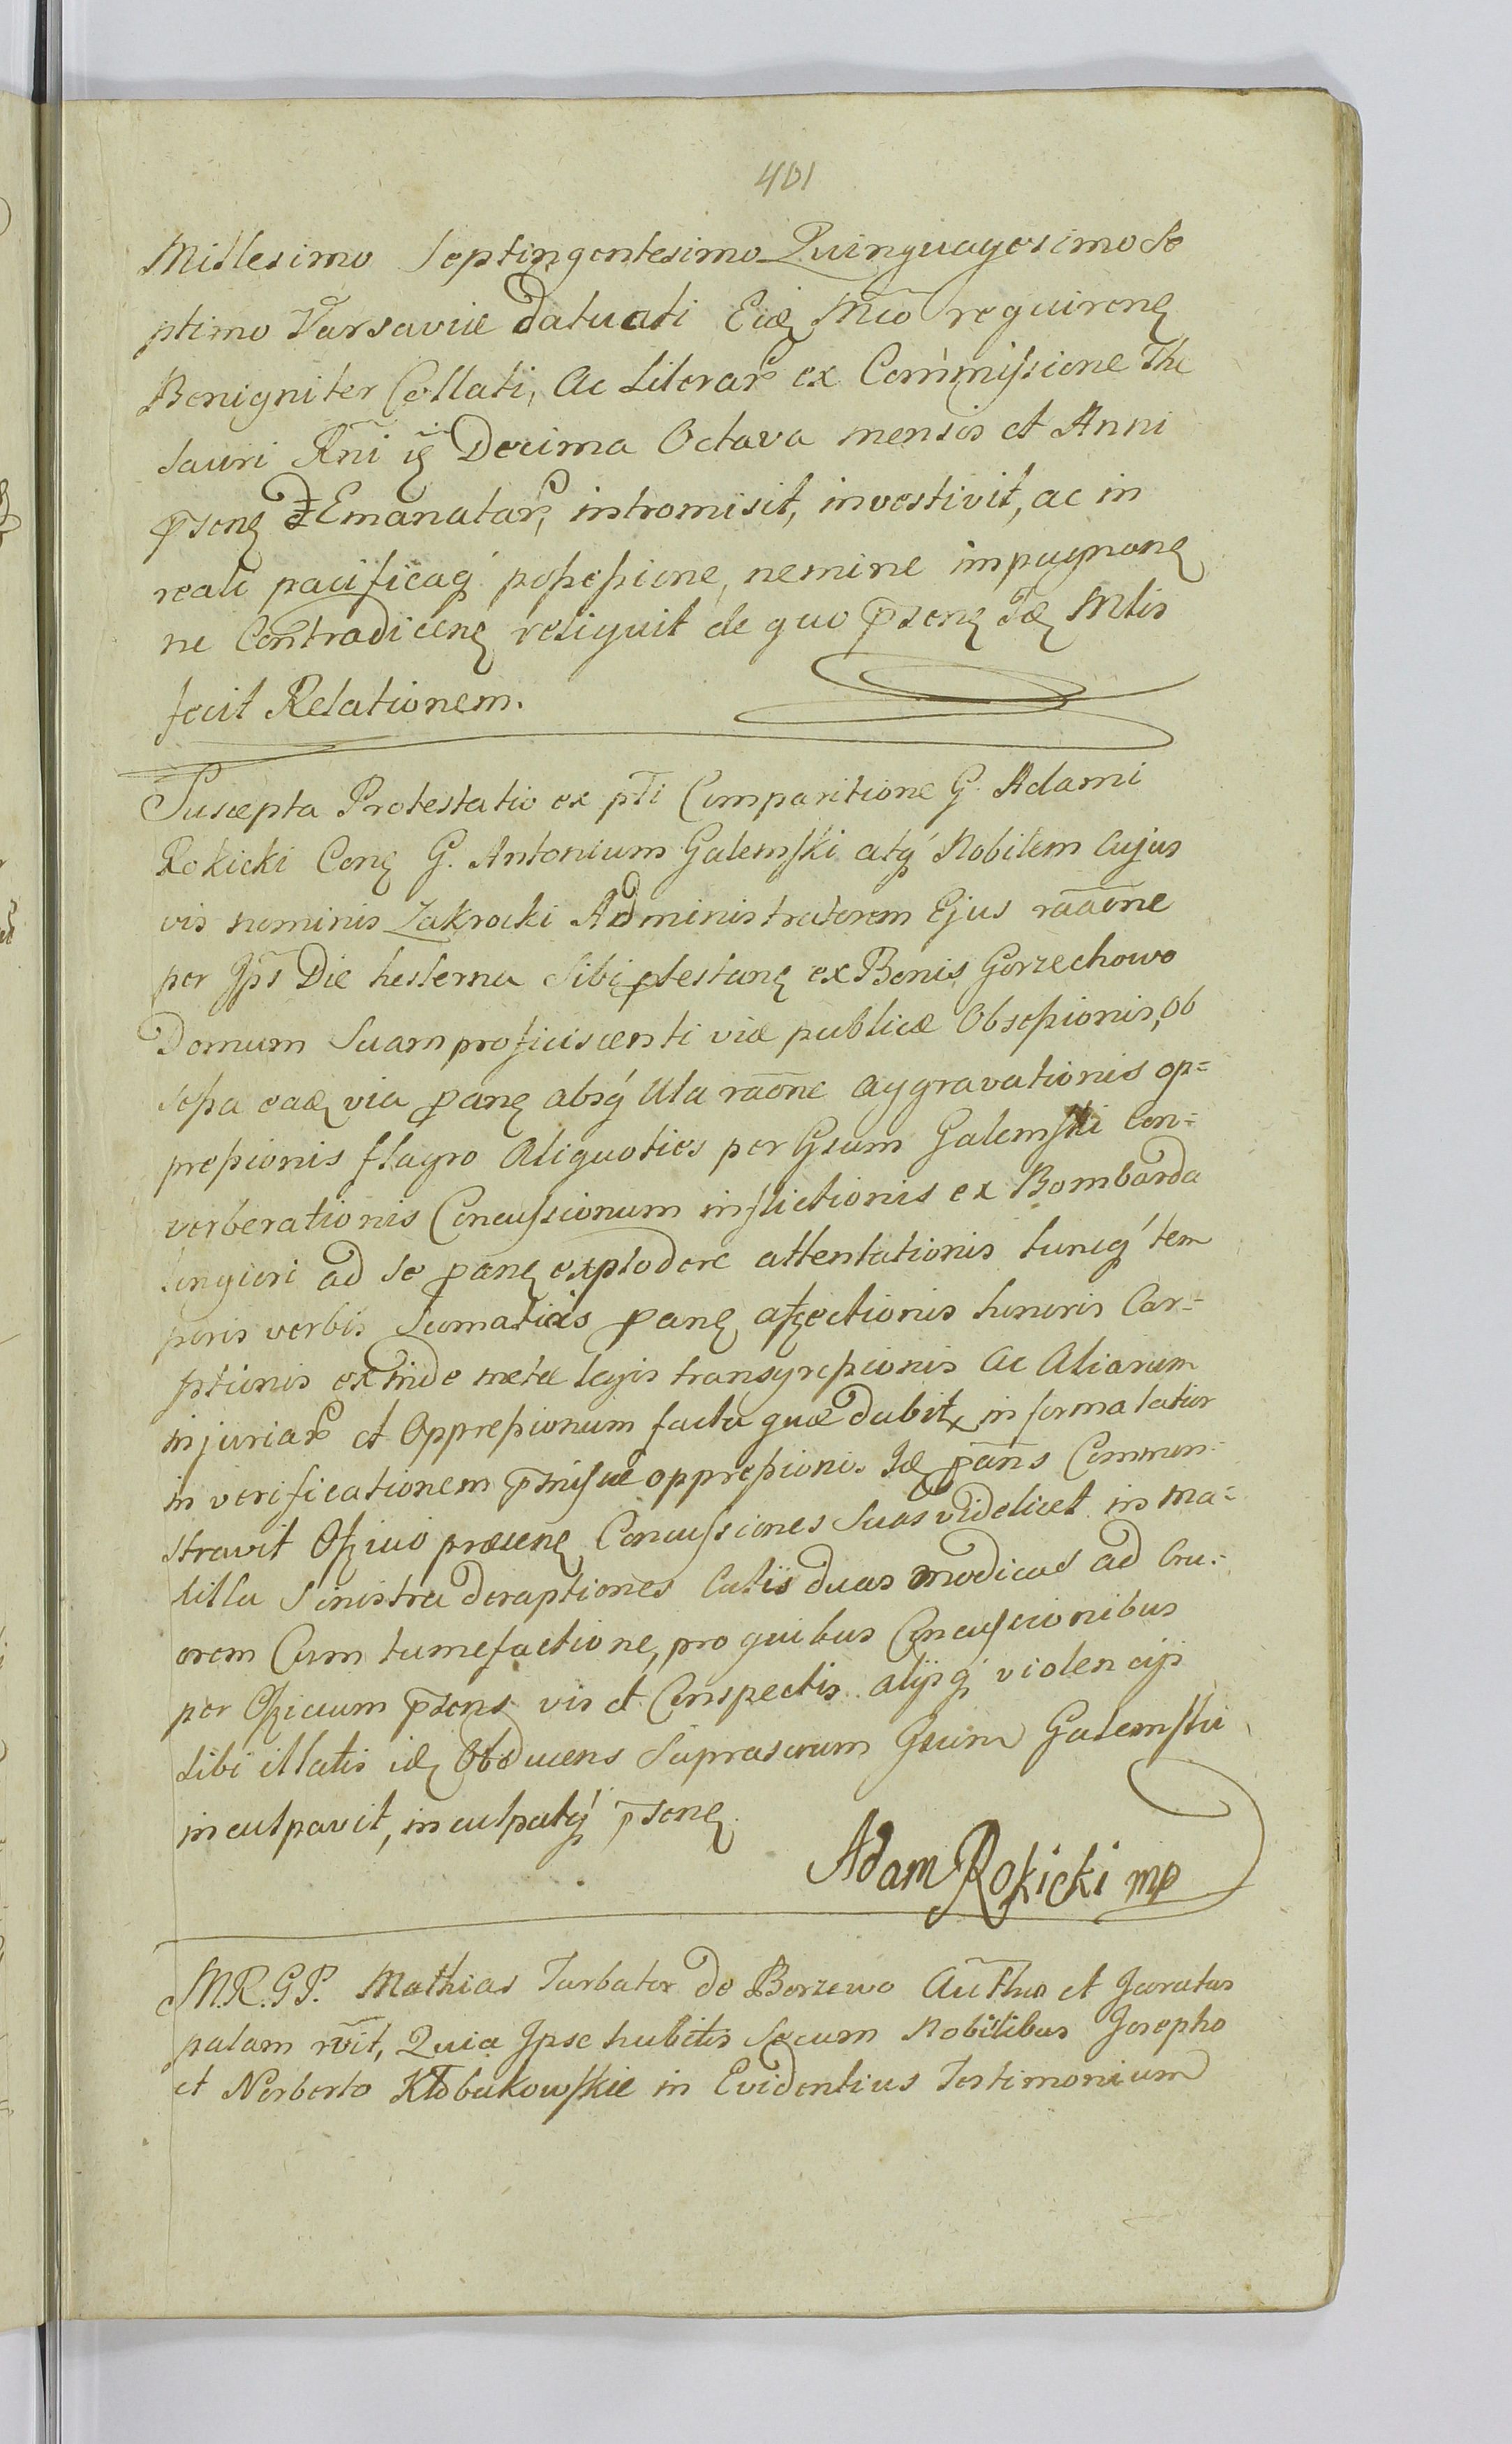 401
Millesimo Septingentesimo Quinquagesimo Se
ptimo Varsaviæ datuati Eidę Mtīo requirenę
Benigniter Collati, Ac Literar ex Commissione The
sauri Rni Decima Octava mensis et Anni
psenę Emanatar, intromisit, investivit, ac in
reali pacificaq́ possessione, nemine impugnanę
ne Contradicenę reliquit de quo psenę Idę Mtlis
fecit Relationem.
Suscepta Protestatio ex pti Comparitione G. Adami
Rokicki Conę G. Antonium Galemski atq́ Nobilem Cujus
vis nominis Zakrocki Administratorem Ejus raāone
per Ips Die hesterna Sibi ptestanę ex Bonis Gorzechowo
Domum Suam proficiscenti viæ publicæ Obsessionis, ob
sessa eadę via panę absq́ Ula raone aggravationis op=
pressionis flagro Aliquoties per Gsum Galemski Con=
verberationis Concussionum inflictionis ex Bombarda
ad se panę explodere attentationis tuncq́ tem
poris verbis Scomaticis panę affectionis honoris Car=
ptionis exinde metæ legis transgressionis Ac Aliarum
injuriar et Oppressionum facta quæ dabitr in forma latior
in verificationem pmissæ oppressionis Idę pans Commun=
stravit Officio præsenę Concussiones Suas videlicet in Ma=
xilla Sinistra deraptiones Cutis duas modicas ad Cru=
orem Cum tumefactione, pro quibus Concussionibus
per Officium psens vis et Conspectis alijsq́ violencijs
Sibi illatis idę Obducens Suprascrum Gsum Galemski
inculpavit, inculpatq́ psenę.
Adam Rokicki mp
M.R.G.P. Mathias Turbator de Borzewo Authus et Juratus
palam rvit, Quia Ipse habitis Secum Nobilibus Josepho
et Norberto Kłobukowskie in Evidentius Testimonium